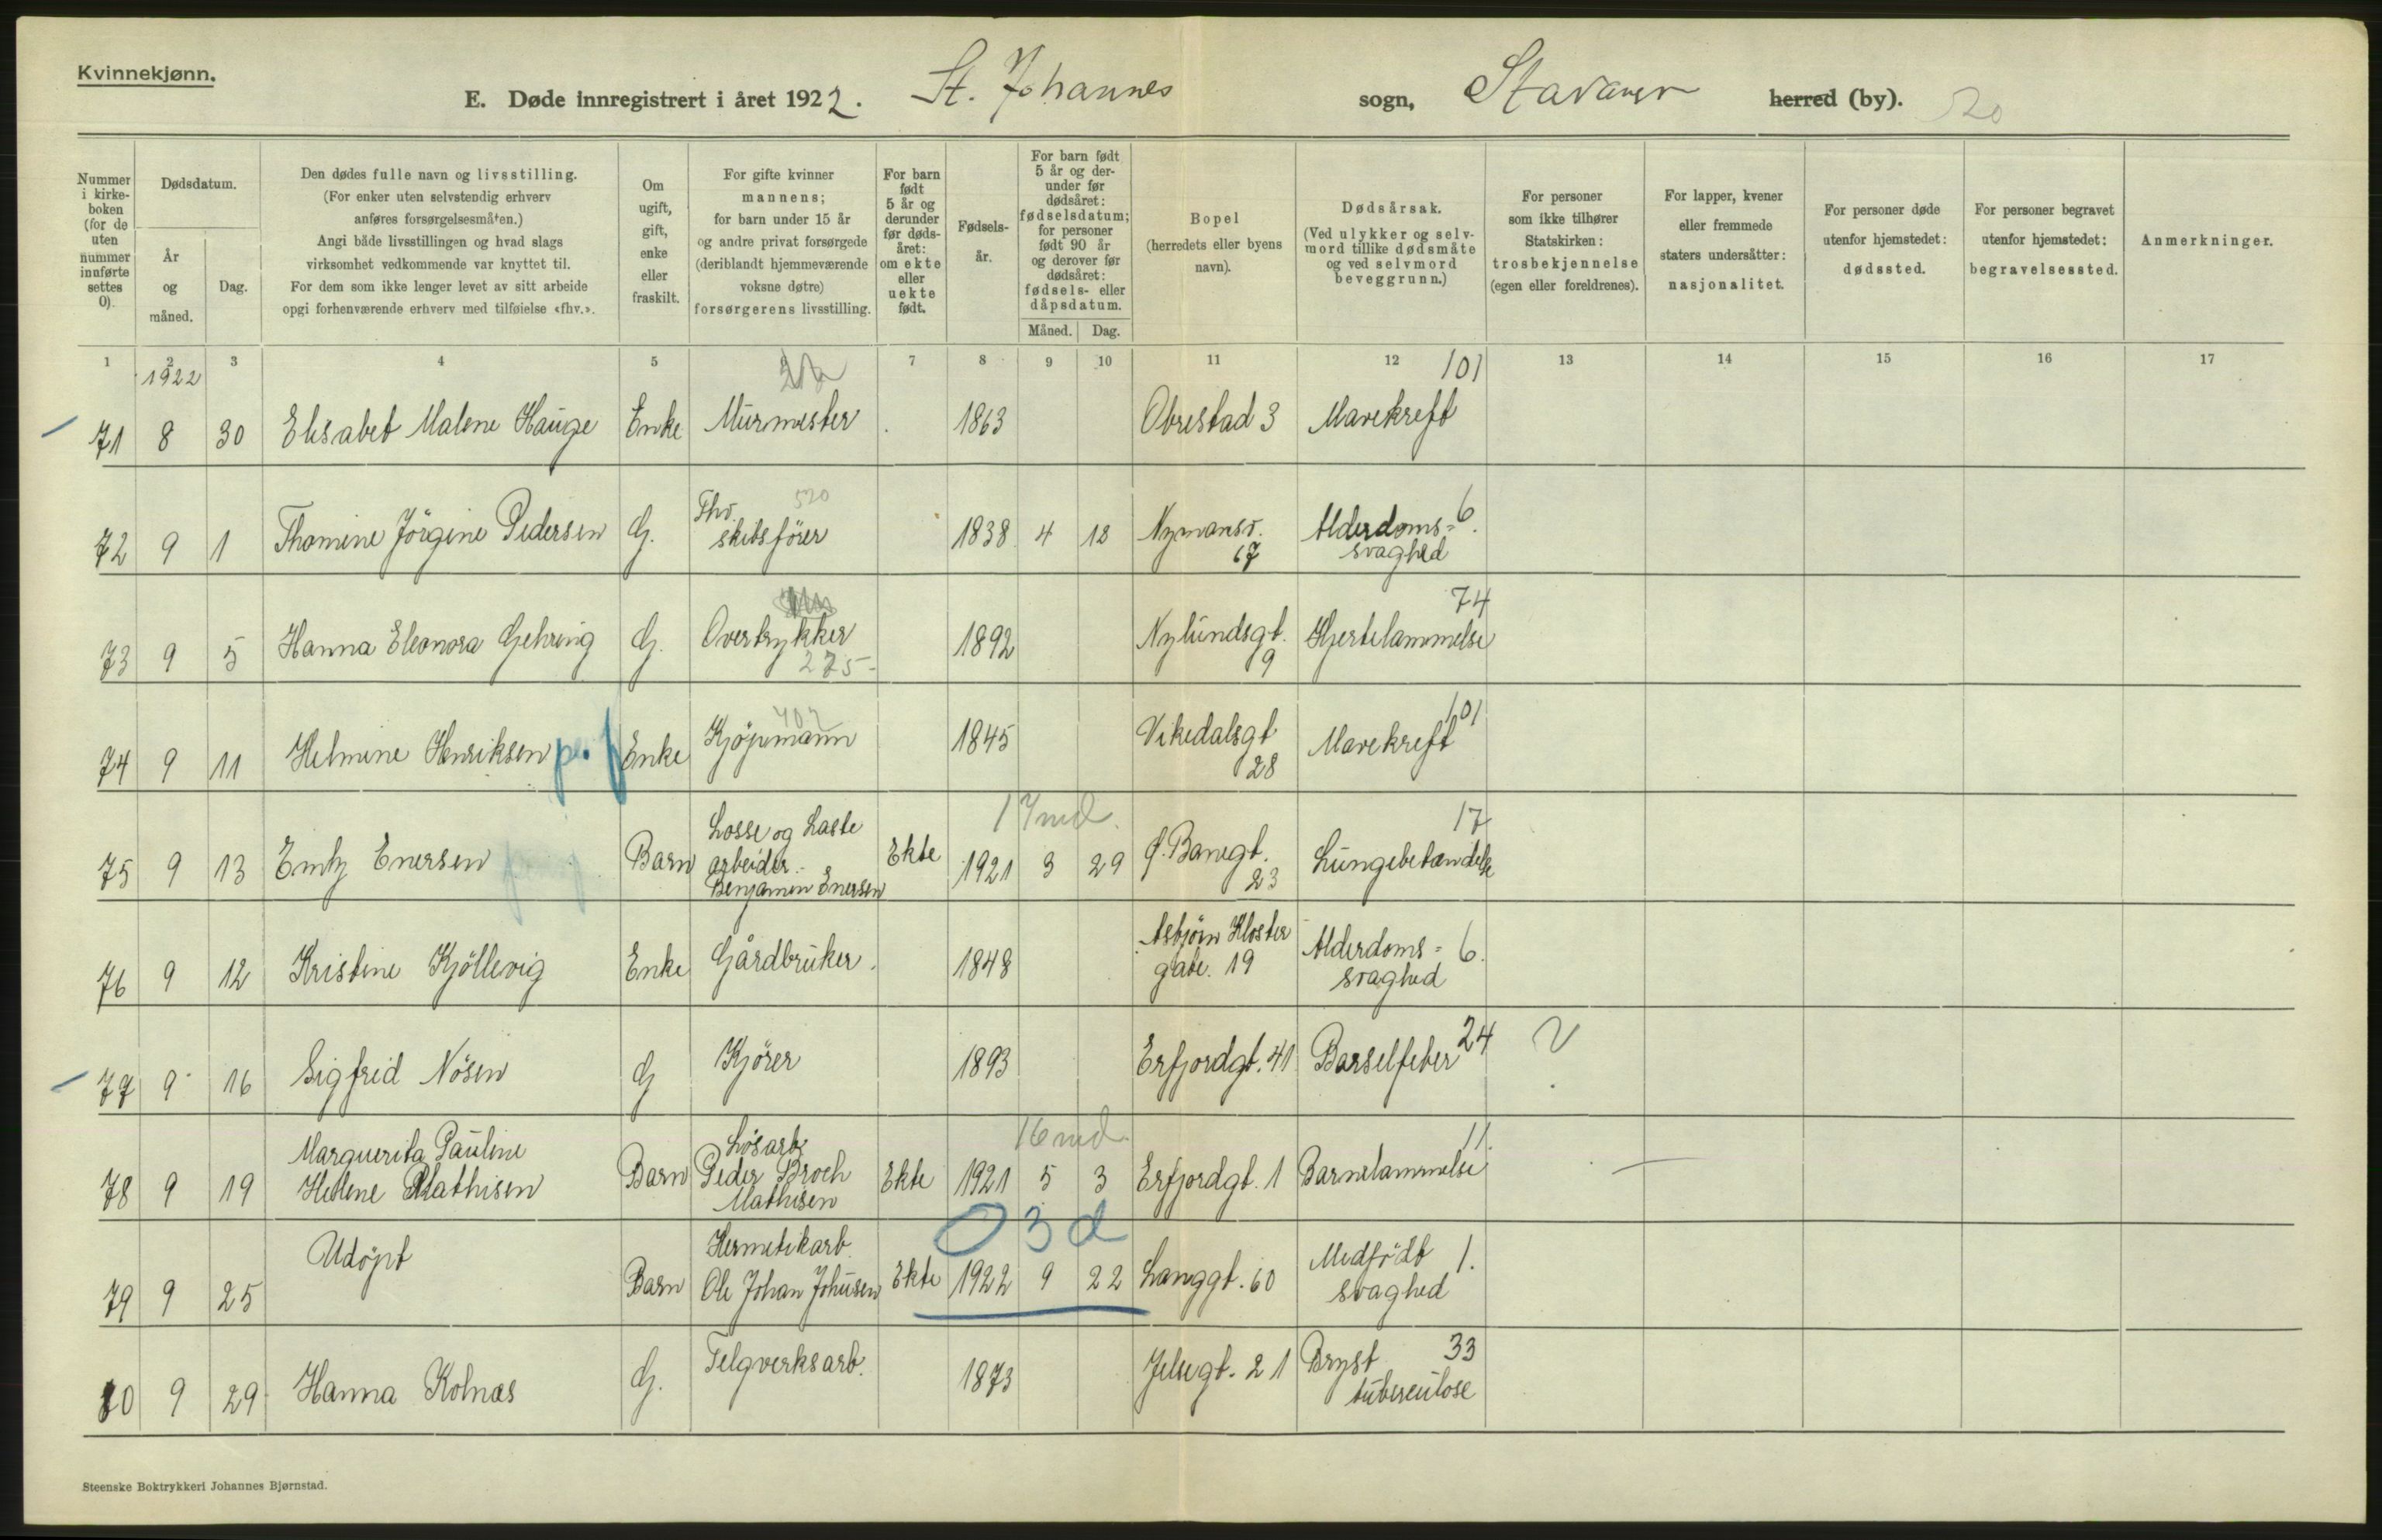 Kvinnekjønn.
E. Døde innregistrert i året 1922. St. Johannes sogn, Stavanger herred (by). 20
Nummer i kirkeboken (for de uten nummer innførte settes 0).
Dødsdatum.
År og måned.
Dag.
Den dødes fulle navn og livsstilling.
(For enker uten selvstendig erhverv
anføres forsørgelsesmåten.)
Angi både livsstillingen og hvad slags
virksomhet vedkommende var knyttet til.
For dem som ikke lenger levet av sitt arbeide
opgi forhenværende erhverv med tilføielse «fhv.».
Om ugift, gift, enke eller fraskilt.
For gifte kvinner
mannens;
for barn under 15 år
og andre privat forsørgede
(deriblandt hjemmeværende
voksne døtre)
forsørgerens livsstilling.
For barn født 5 år og derunder før dødsåret: om ekte eller uekte født.
Fødselsår.
For barn født 5 år og derunder før dødsåret: fødselsdatum; for personer født 90 år og derover før dødsåret: fødsels- eller dåpsdatum.
Måned. Dag.
Bopel
(herredets eller byens
navn).
Dødsårsak.
(Ved ulykker og selvmord tillike dødsmåte
og ved selvmord
beveggrunn.)
For personer
som ikke tilhører
Statskirken:
trosbekjennelse
(egen eller foreldrenes).
For lapper, kvener
eller fremmede
staters undersåtter:
nasjonalitet.
For personer døde
utenfor hjemstedet:
dødssted.
For personer begravet
utenfor hjemstedet:
begravelsessted.
Anmerkninger.
1 2 3 4 5 6 7 8 9 10 11 12 13 14 15 16 17
1922
71 8 30 Elisabet Malene Hauge Enke Murmester 1863 Obrestad 3 Mavekreft 101
72 9 1 Thomine Jörgine Pedersen G. Fhv. skibsförer 520 1838 4 18 Nymansv. 67 Alderdoms=svaghed 6.
73 9 5 Hanna Eleonora Gehring G. Overtrykker 275- 1892 Nylundsgt. 9 Hjertelammelse 74
74 9 11 Helmine Henriksen Enke Kjöpmann 407 1845 Vikedalsgt 28 Mavekreft 101
75 9 13 Emly Enersen Barn Losse og Laste arbeider. Benjamin Enersen Ekte 17 md. 1921 3 29 Ø. Banegt. 23 Lungebetændelse 17
76 9 12 Kristine Kjöllevig Enke Gårdbruker. 1848 Asbjörn Kloster gate. 19 Alderdoms=svaghed 6.
77 9 16 Sigfrid Nösen G Kjörer 1893 Erfjordgt. 41 Barselfeber 24
78 9 19 Marguerita Pauline Helene Mathisen Barn Lösarb. Peder Broch Mathisen Ekte 16 md. 1921 5 3 Erfjordgt. 1 Barnelammelse 11.
79 9 25 Udöpt Barn Hermetikarb. Ole Johan Johnsen Ekte 0 3 d 1922 9 22 Langgt. 60 Medfödt svaghed 1.
80 9 29 Hanna Kolnes G. Telgverksarb. 1873 Jelsegt. 21 Bryst tuberculose 33
Steenske Boktrykkeri Johannes Bjørnstad.